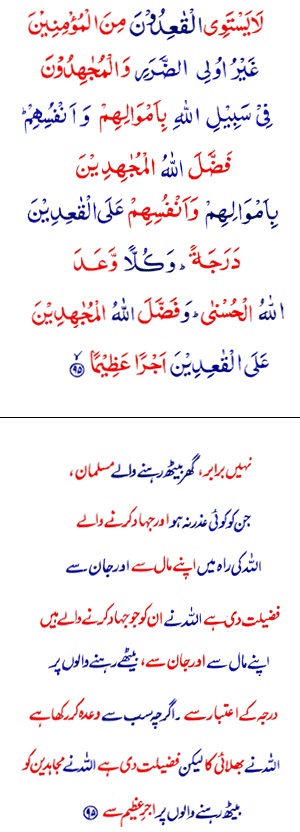 لَا یَسْتَوِی الْقٰعِدُوْنَ مِنَ الْمُؤْمِنِیْنَ
غَیْرُ اُولِی الضَّرَرِ وَالْمُجٰهِدُوْنَ
فِیْ سَبِیْلِ اللّٰهِ بِاَمْوَالِهِمْ وَاَنْفُسِهِمْ ؕ
فَضَّلَ اللّٰهُ الْمُجٰهِدِیْنَ
بِاَمْوَالِهِمْ وَاَنْفُسِهِمْ عَلَی الْقٰعِدِیْنَ
دَرَجَةً ؕ وَكُلًّا وَّعَدَ
اللّٰهُ الْحُسْنٰی ؕ وَفَضَّلَ اللّٰهُ الْمُجٰهِدِیْنَ
عَلَی الْقٰعِدِیْنَ اَجْرًا عَظِیْمًا ۙ﴿۹۵﴾
نہیں برابر، گھر بیٹھ رہنے والے مسلمان،
جن کو کوئی عذر نہ ہو اور جہاد کرنے والے
اللہ کی راہ میں اپنے مال سے اور جان سے
فضیلت دی ہے اللہ نے ان کو جو جہاد کرنے والے ہیں
اپنے مال سے اور جان سے، بیٹھے رہنے والوں پر
درجہ کے اعتبار سے ۔ اگرچہ سب سے وعدہ کر رکھا ہے
اللہ نے بھلائی کا لیکن فضیلت دی ہے اللہ نے مجاہدین کو
بیٹھ رہنے والوں پر اجرِ عظیم سے ﴿۹۵﴾